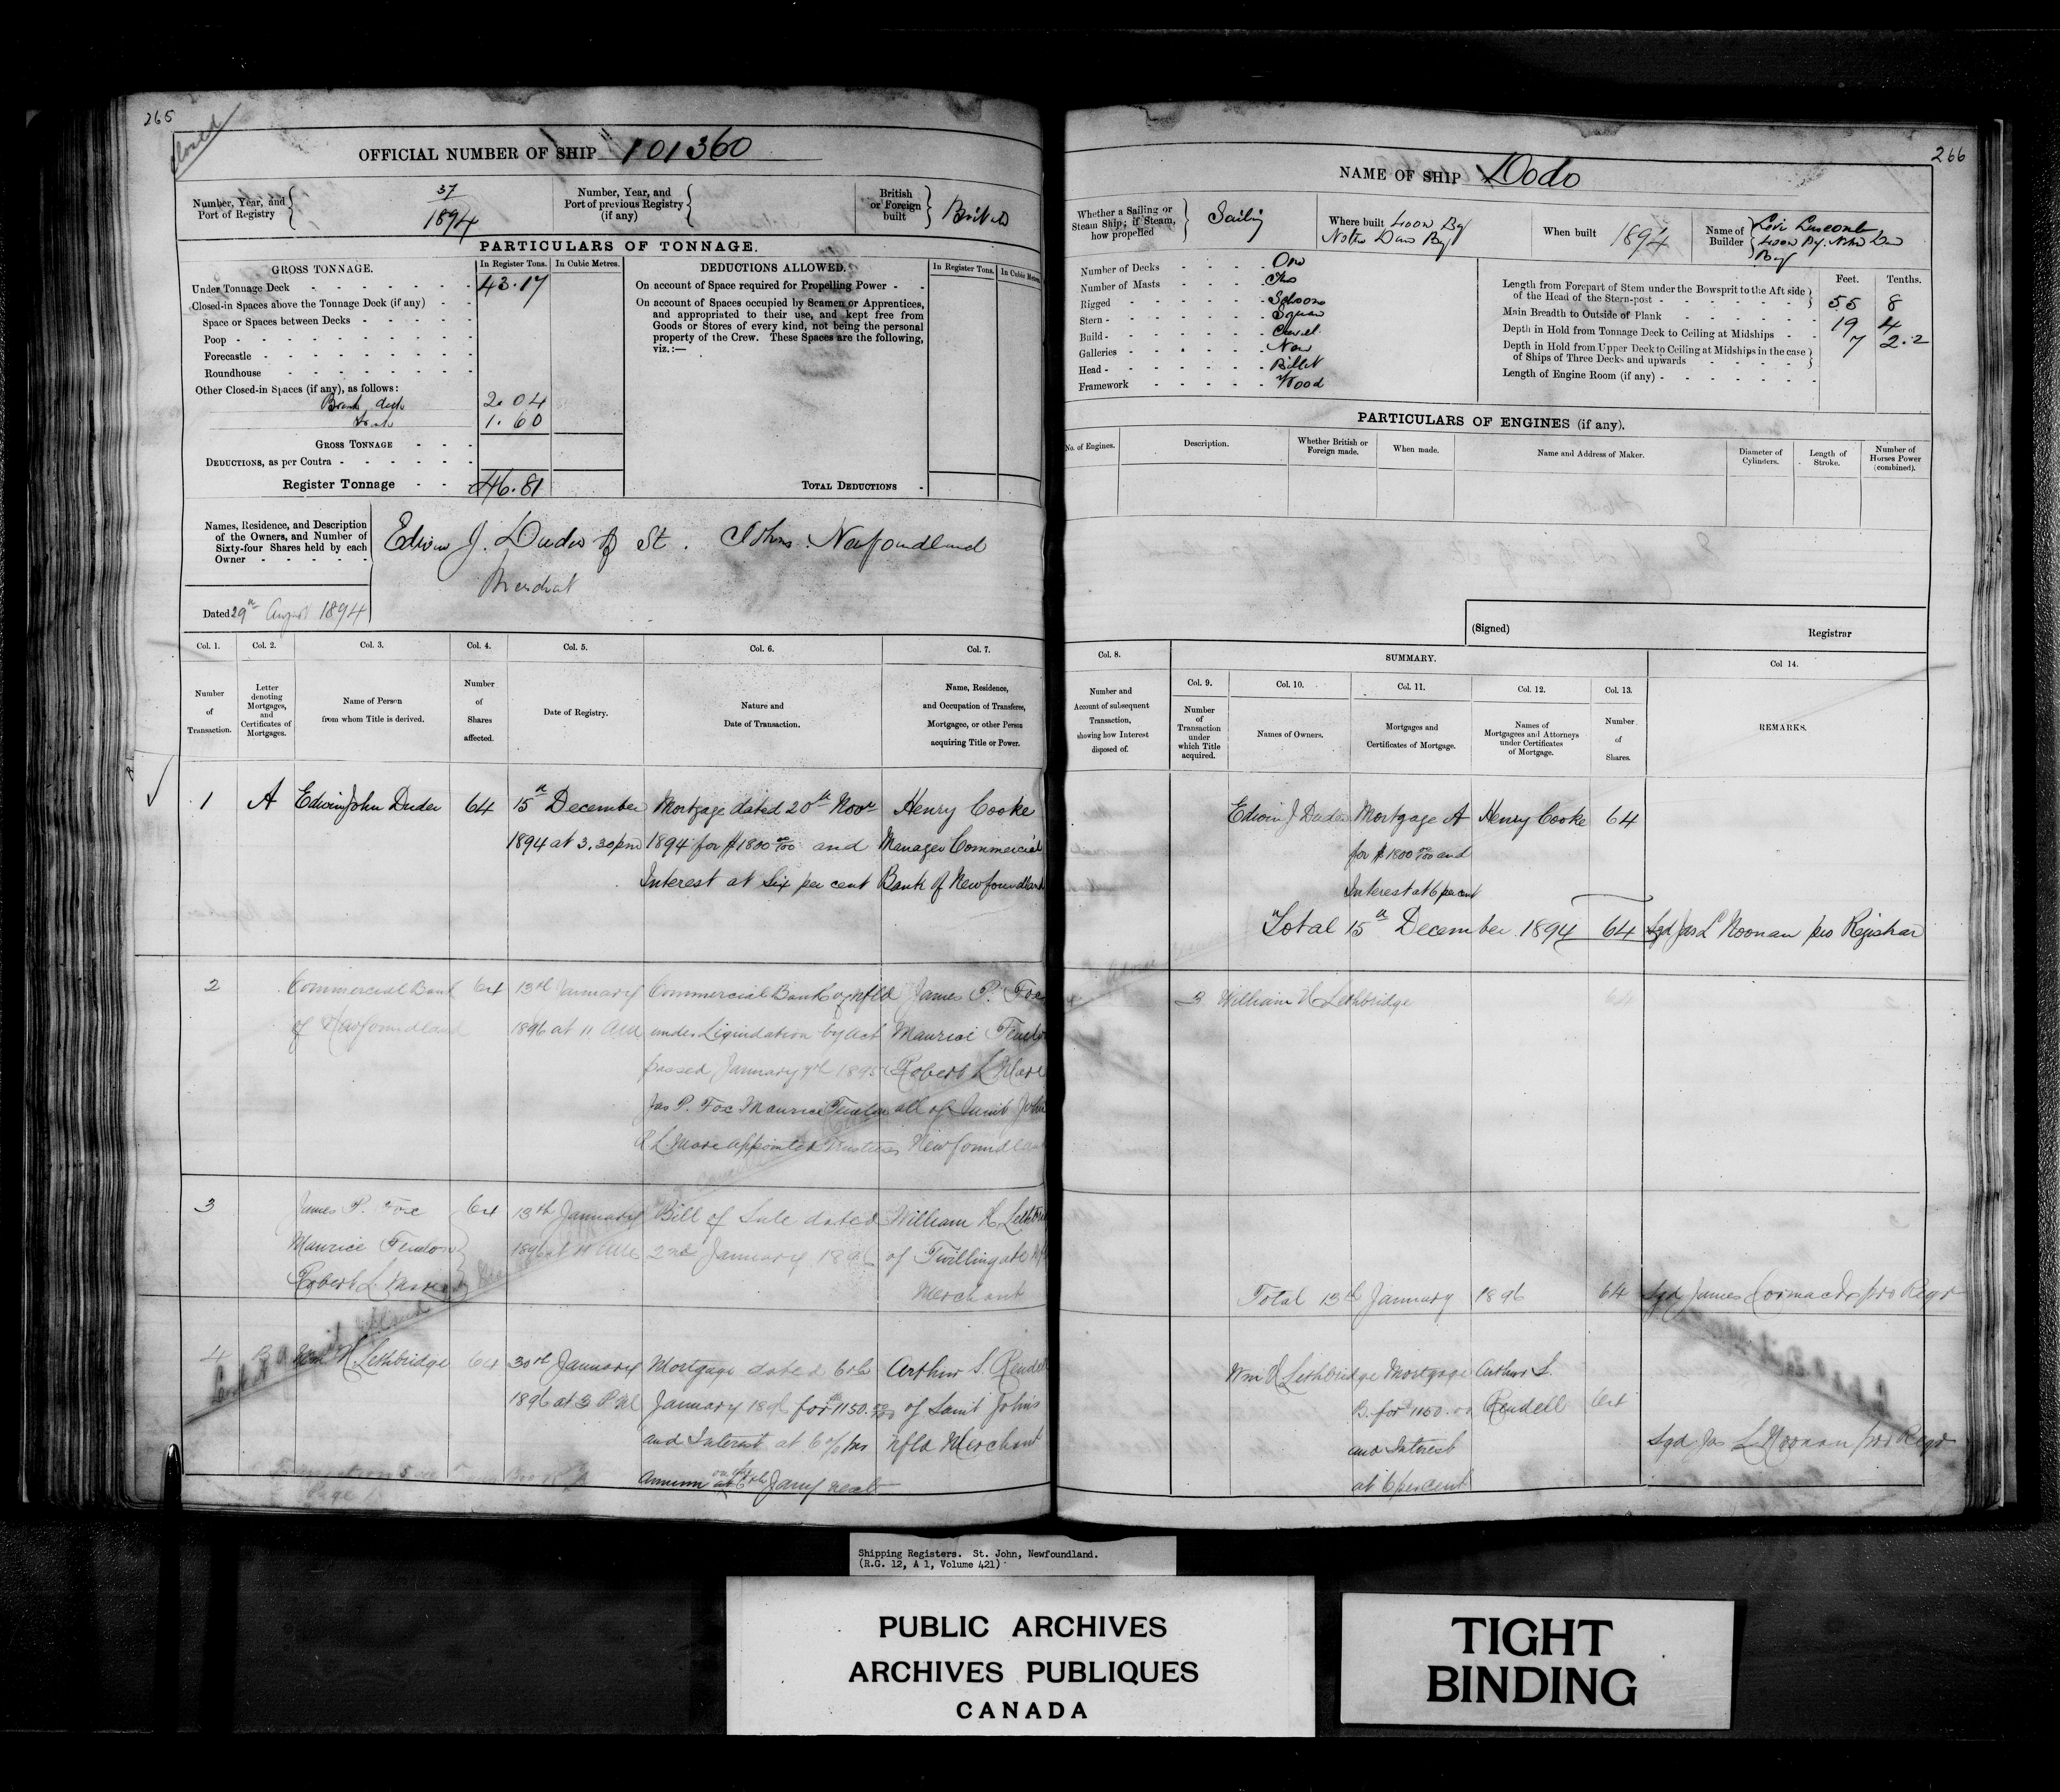 265
Closed
OFFICIAL NUMBER OF SHIP 101360
Number, Year, and Port of Registry 37 1894
Number, Year, and Port of previous Registry (if any)
British or Foreign built British
PARTICULARS OF TONNAGE.
GROSS TONNAGE. In Register Tons. In Cubic Metres.
Under Tonnage Deck 43.17
Closed-in Spaces above the Tonnage Deck (if any)
Space or Spaces between Decks
Poop
Forecastle
Roundhouse
Other Closed-in Spaces (if any), as follows:
Break deck 2.04
1.60
GROSS TONNAGE
DEDUCTIONS, as per Contra
Register Tonnage 46.81
DEDUCTIONS ALLOWED. In Register Tons. In Cubic Metres.
On account of Space required for Propelling Power
On account of Spaces occupied by Seamen or Apprentices,
and appropriated to their use, and kept free from
Goods or Stores of every kind, not being the personal
property of the Crew. These Spaces are the following,
viz.:—
TOTAL DEDUCTIONS
Names, Residence, and Description
of the Owners, and Number of
Sixty-four Shares held by each
Owner
Edwin J. Duder of St. Johns Newfoundland
Merchant
Dated 29th August 1894
Col. 1. Col. 2. Col. 3. Col. 4. Col. 5. Col. 6. Col. 7.
Number of Transaction.
Letter denoting Mortgages, and Certificates of Mortgages.
Name of Person from whom Title is derived.
Number of Shares affected.
Date of Registry.
Nature and Date of Transaction.
Name, Residence, and Occupation of Transferee, Mortgagee, or other Person acquiring Title or Power.
1 A Edwin John Duder 64 15th December Mortgage dated 20th Novr Henry Cooke
1894 at 3.30 pm 1894 for $1800 00/100 and Manager Commercial
Interest at Six per cent Bank of Newfoundland
2 Commercial Bank 64 13th January Commercial Bank of Nfld James P. Fox
of Newfoundland 1896 at 11 AM under Liquidation by Act Maurice Fenelon
passed January 9th 1895 Robert L Mare
Jas P. Fox Maurice Fenelon all of Saint John
R L Mare appointed Trustees Newfoundland
3 James P. Fox 64 13th January Bill of Sale dated William H Lethbridge
Maurice Fenelon 1896 at 11 AM 2nd January 1896 of Twillingate
Robert L. Mare Merchant
4 B Wm H Lethbridge 64 30th January Mortgage dated 6th Arthur S. Rendell
1896 at 3 PM January 1896 for $1150.00 of Saint Johns
and Interest at 6 % per Nfld Merchant
Annum
266
NAME OF SHIP Dodo
Whether a Sailing or Steam Ship; if Steam, how propelled Sailing
Where built Loon Bay Notre Dame Bay
When built 1894
Name of Builder Levi Luscomb Loon Bay. Notre Dame Bay
Number of Decks One
Number of Masts Two
Rigged Schooner
Stern Square
Build Carvel
Galleries None
Head Billet
Framework Wood
Feet. Tenths.
Length from Forepart of Stem under the Bowsprit to the Aft side of the Head of the Stern-post 55 8
Main Breadth to Outside of Plank 19 4
Depth in Hold from Tonnage Deck to Ceiling at Midships 7 2.2
Depth in Hold from Upper Deck to Ceiling at Midships in the case of Ships of Three Decks and upwards
Length of Engine Room (if any)
PARTICULARS OF ENGINES (if any).
No. of Engines. Description. Whether British or Foreign made. When made. Name and Address of Maker. Diameter of Cylinders. Length of Stroke. Number of Horses Power (combined).
(Signed) Registrar
Col. 8. SUMMARY. Col 14.
Col. 9. Col. 10. Col. 11. Col. 12. Col. 13.
Number and Account of subsequent Transaction, showing how Interest disposed of.
Number of Transaction under which Title acquired.
Names of Owners.
Mortgages and Certificates of Mortgage.
Names of Mortgagees and Attorneys under Certificates of Mortgage.
Number of Shares.
REMARKS.
Edwin J Duder Mortgage A Henry Cooke 64
for $1800 00/100 and
Interest at 6 per cent
Total 15th December 1894 64 Sgd Jas L Noonan pro Registrar
3 William H Lethbridge 64
Total 13th January 1896 64 Sgd James Cormack pro Regr
Wm H Lethbridge Mortgage Arthur S.
B. for $1150.00 Rendell 64
and Interest
at 6 per cent
Sgd Jas L Noonan pro Regr
Shipping Registers. St. John, Newfoundland.
(R.G. 12, A 1, Volume 421)
PUBLIC ARCHIVES
ARCHIVES PUBLIQUES
CANADA
TIGHT
BINDING